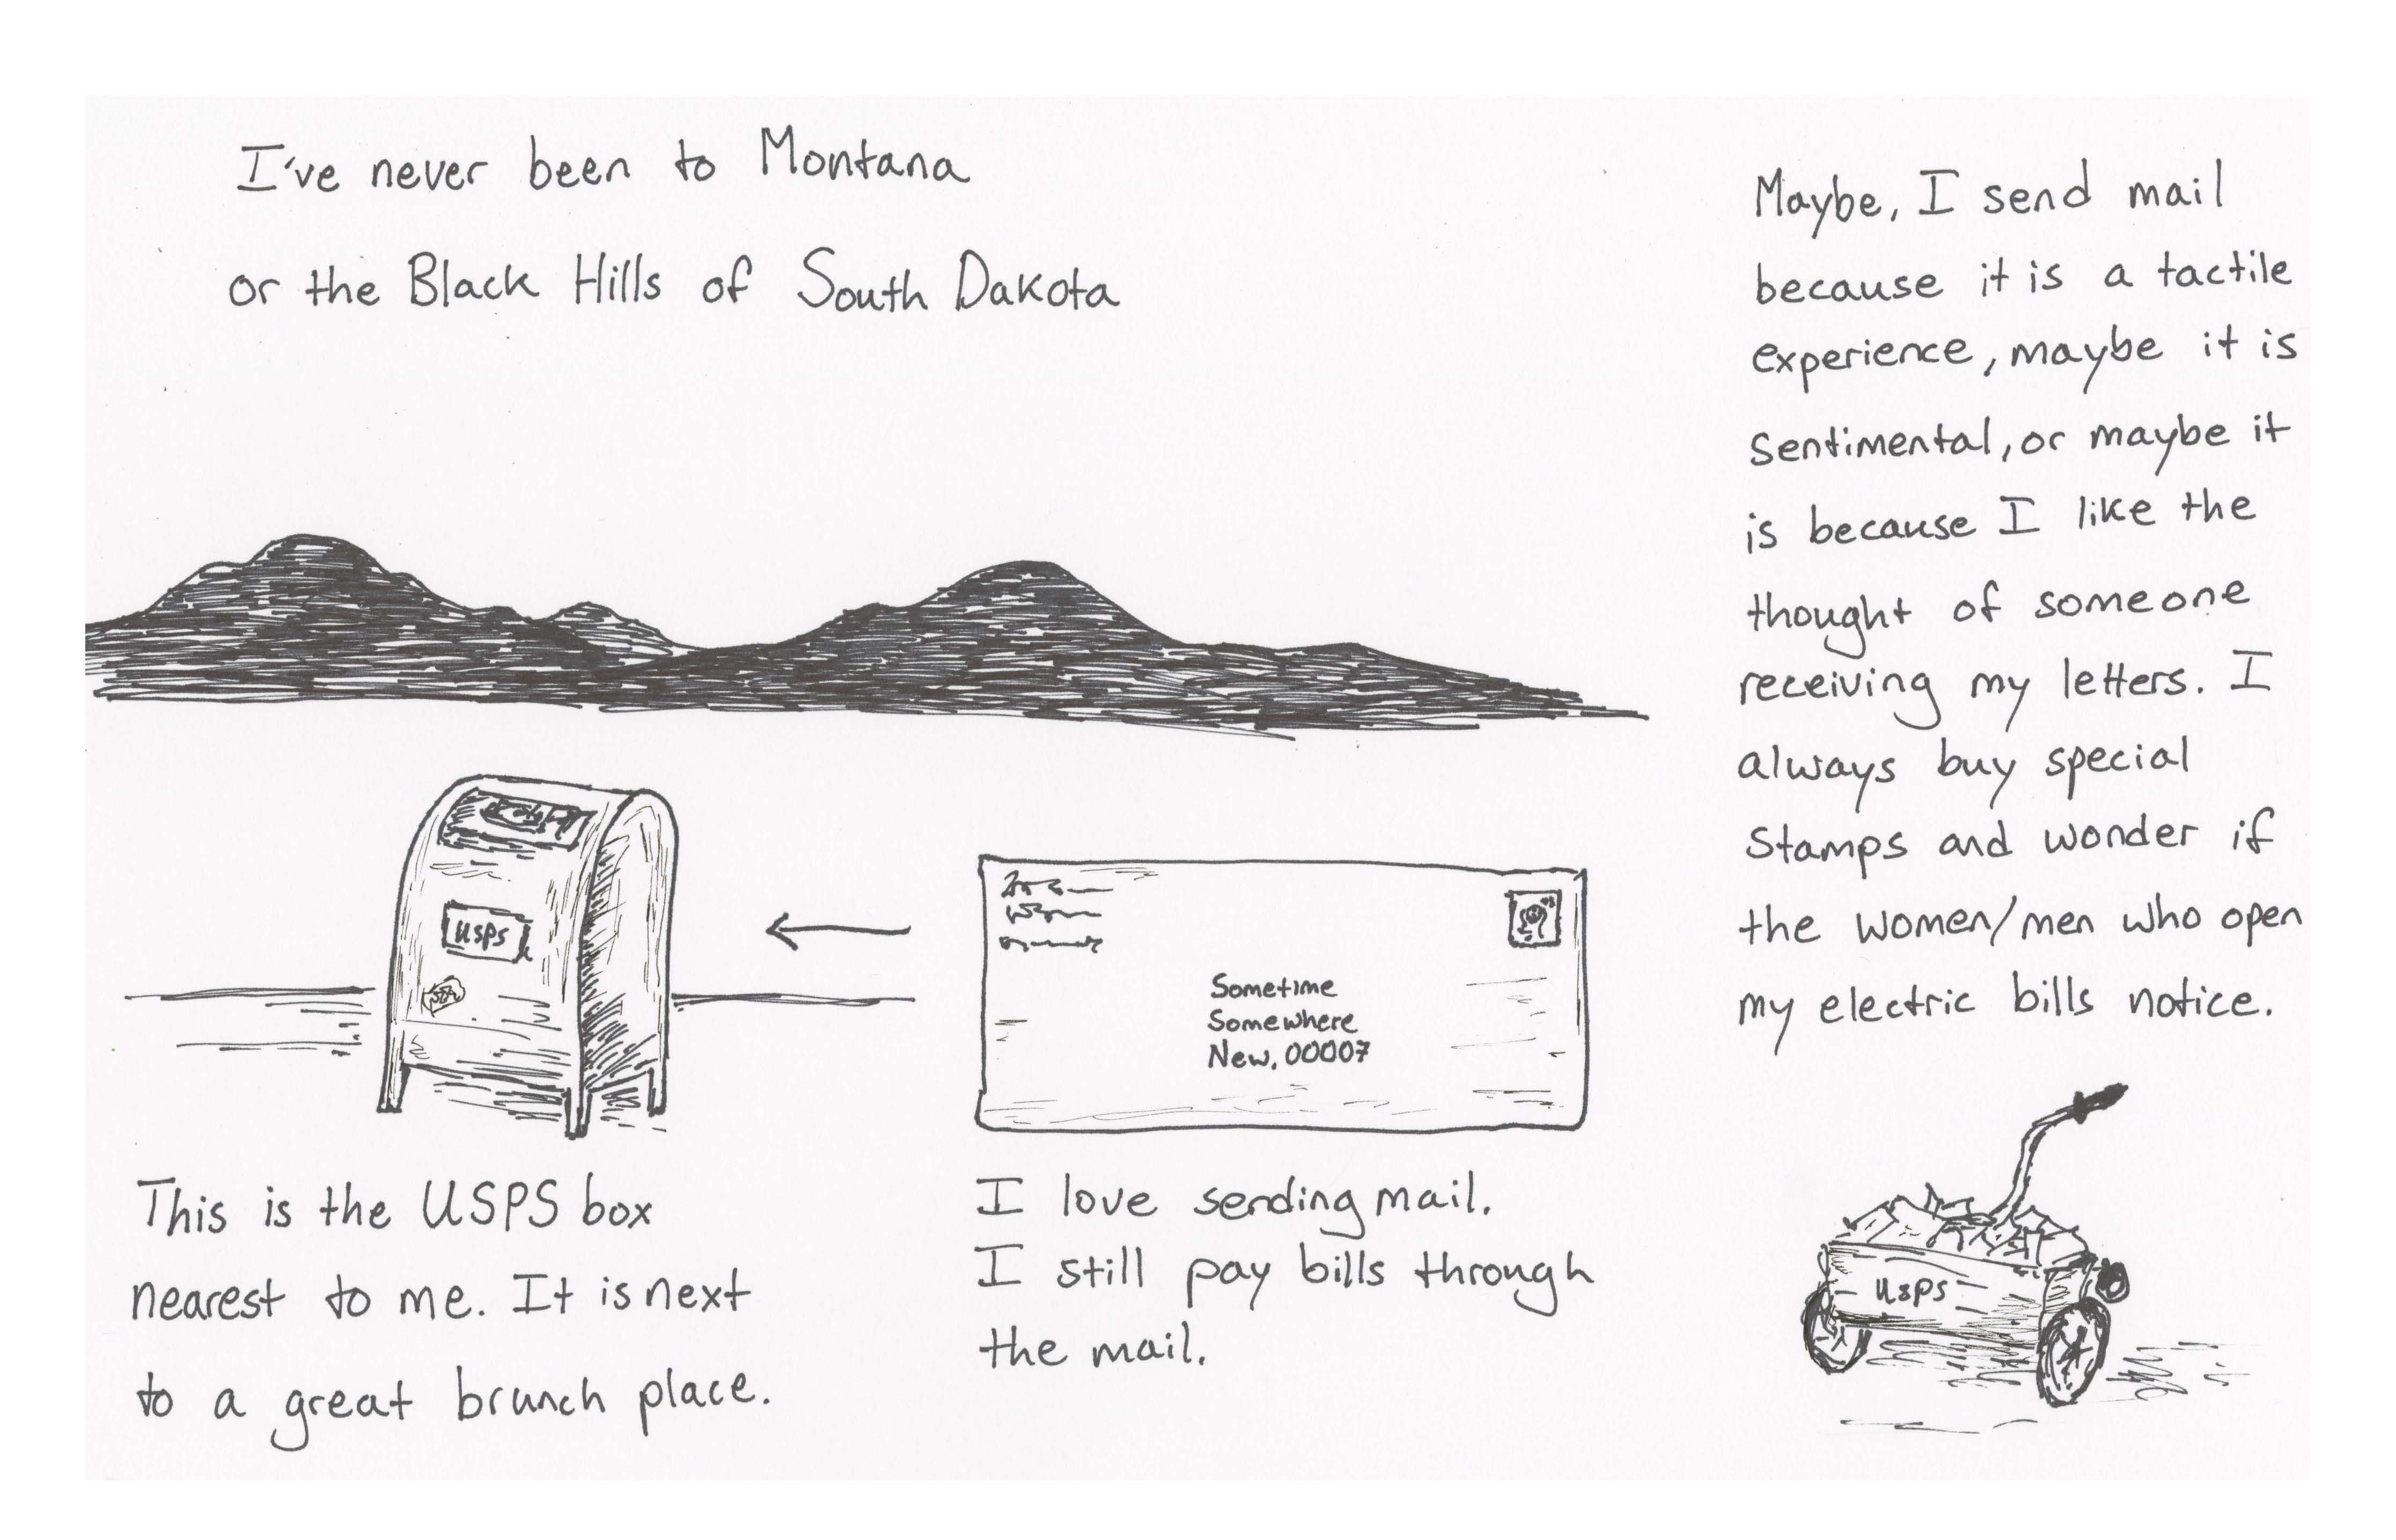 I've never been to Montana
or the Black Hills of South Dakota
USPS
This is the USPS box
nearest to me. It is next
to a great brunch place.
Sometime
Somewhere
New, 00007
I love sending mail.
I still pay bills through
the mail.
Maybe, I send mail
because it is a tactile
experience, maybe it is
sentimental, or maybe it
is because I like the
thought of someone
receiving my letters. I
always buy special
stamps and wonder if
the women/men who open
my electric bills notice.
USPS